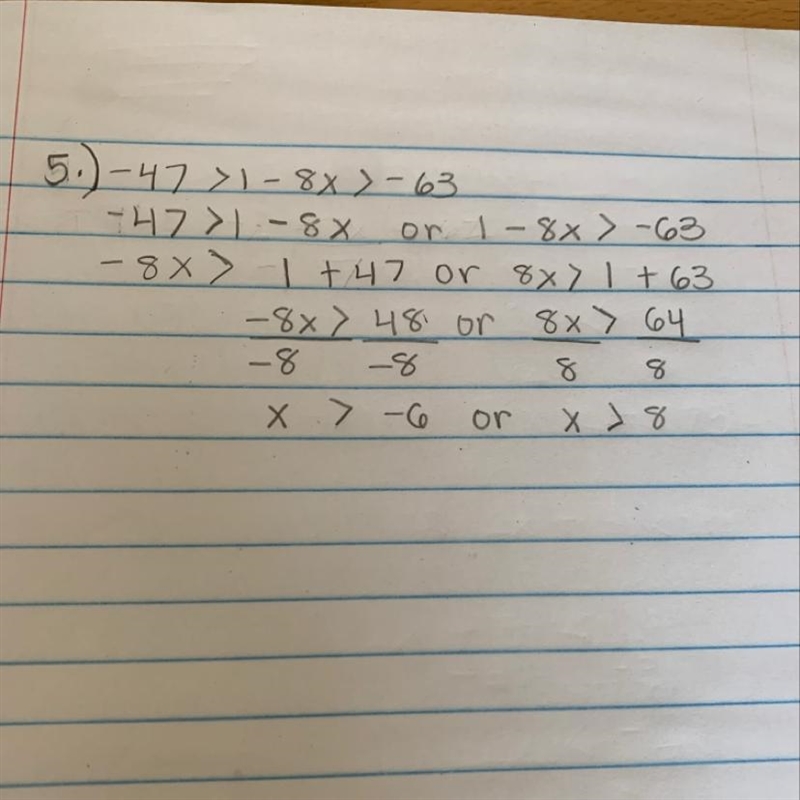 5.) -47 > 1 - 8x > -63
-47 > 1 - 8x or 1 - 8x > -63
-8x > 1 + 47 or 8x > 1 + 63
-8x > 48 or 8x > 64
-8 -8 8 8
x > -6 or x > 8